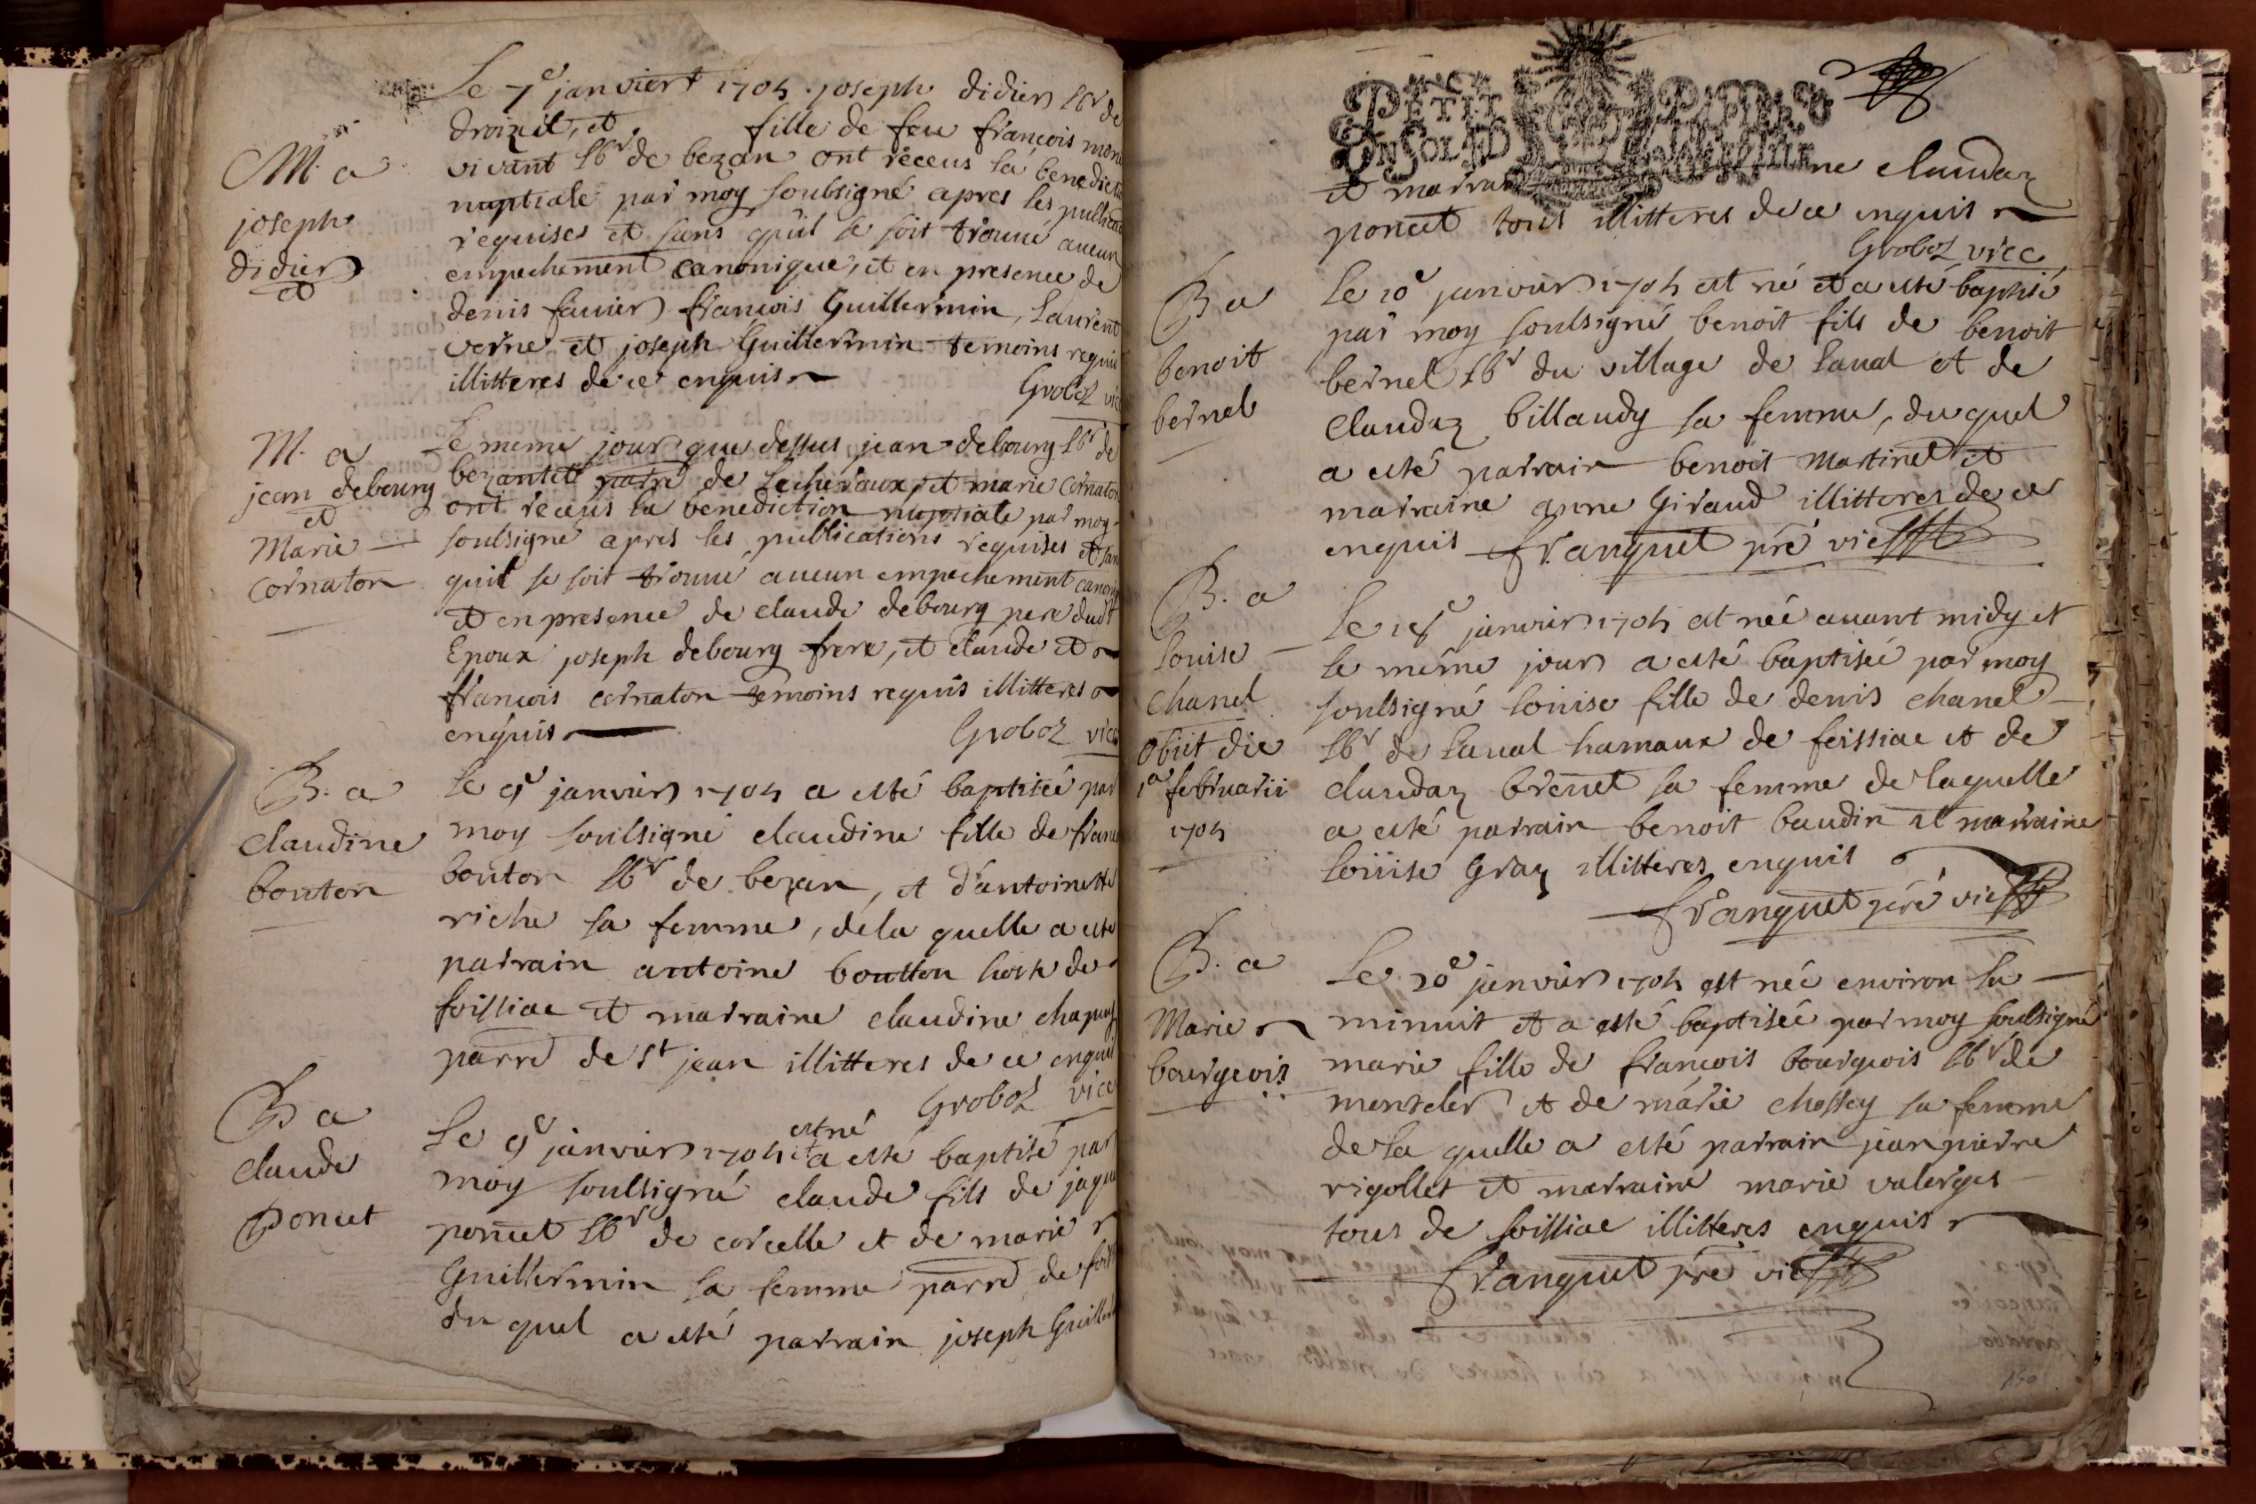 Le 7e janvier 1704 joseph didier lbr de
droizil, et fille de feu francois
vivant lbr de bezan ont receus la benedict
nuptiale par moy soubsigné apres les
requises et sans quil se soit trouvé aucun
empechement canonique, et en presence de
denis favier francois Guillermin, Laurent
verne et joseph Guillermin temoins requis
illitteres de ce enquis
Groboz vice
M. a
joseph
didier
et
Le meme jour que dessus jean debourg lbr de
bezantet parre de Lecheroux, et marie cornaton
ont receus la benediction nuptiale par moy
soubsigné apres les publications requises et sans
quil se soit trouvé aucun empechement canoniq
et en presence de claude debourg pere dudt
Epoux joseph debourg frere, et claude et
francois cornaton temoins requis illitteres
enquis
Groboz vice
M. a
jean debourg
et
Marie
cornaton
Le 9e janvier 1704 a esté baptiseé par
moy soubsigné claudine fille de franc
bouton lbr de bezan, et d'antoinette
riche sa femme, dela quelle a esté
parrain antoine boutton hoste de
foissiac et marraine claudine chapuy
parre de st jean illitteres de ce enquis
Groboz vice
B. a
claudine
bouton
Le 9e janvier 1704 est né et a esté baptisé par
moy soubsigné claude fils de jaque
poncet lbr de corcelle et de marie
Guillermin sa femme parre de
du quel a esté parrain joseph Guillerm
B a
claude
Poncet
PETIT PAPIER
UN SOL
et marraine claudaz
poncet tous illitteres de ce enquis
Groboz vice
Le 10e janvier 1704 est né et a esté baptisé
par moy soubsigné benoit fils de benoit
bernel lbr du village de Laval et de
Claudaz billaudy sa femme, du quel
a esté parrain benoit Martinet et
marraine anne Giraud illitteres de ce
enquis franquet pré vic
B a
benoit
bernel
Le 15e janvier 1704 est née avant midy et
le même jour a esté baptisée par moy
soubsigné Louise fille de denis chanel
lbr de Laval hamaux de feissiac et de
claudaz brevet sa femme de laquelle
a esté parrain benoit baudin et marraine
Loüise Graz illitteres enquis
franquet pré vic
B. a
Louise
Chanel
Obiit die
1a februarii
1704
Le 20e janvier 1704 est née environ la
minuit et a esté baptisée par moy soubsigné
marie fille de francois bourgeois lbr de
montcler et de marie chossey sa femme
de la quelle a esté parrain jean pierre
rigollet et marraine marie valerges
tous de foissiac illitteres enquis
franquet pré vic
B. a
Marie
bourgeois